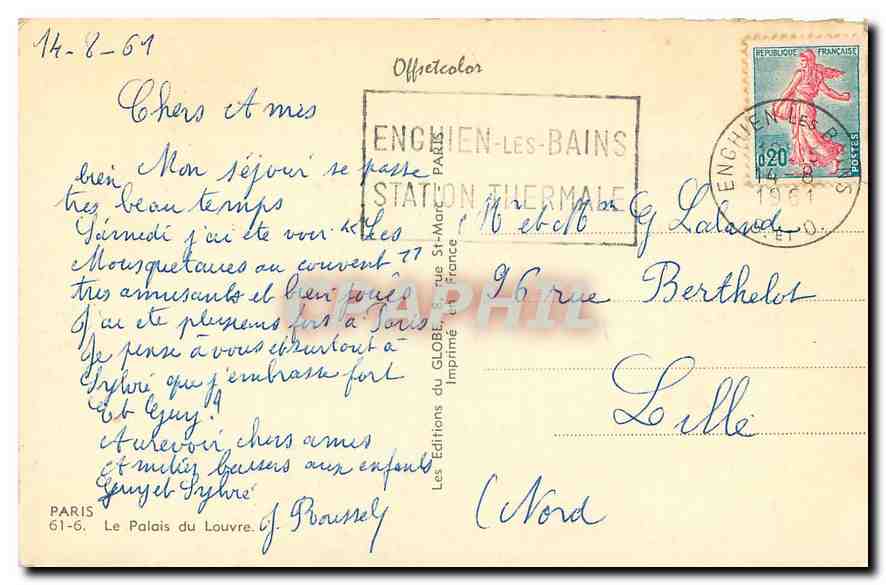 14-8-61
Offsetcolor
Chers Amis
Mon séjour se passe
bien
tres beau temps
Samedi j'ai ete voir "Les
Mousquetaires au couvent"
tres amusants et bien joués
J'ai ete plusieurs fois à Paris
Je pense à vous et surtout à
Sylvié que j'embrasse fort
Et Guy?
Aurevoir chers amis
Amitiés baisers aux enfants
Guy et Sylvié
J. Roussel
PARIS
61-6. Le Palais du Louvre.
Les Editions du GLOBE, 8, rue St-Marc, PARIS
Imprimé en France
ENGHIEN-LES-BAINS
STATION THERMALE
REPUBLIQUE FRANÇAISE
0,20
POSTES
ENGHIEN LES BAINS
14-8
1961
S. ET O.
Mr et Mme G Laland
96 rue Berthelot
Lille
(Nord
CPAPHIL